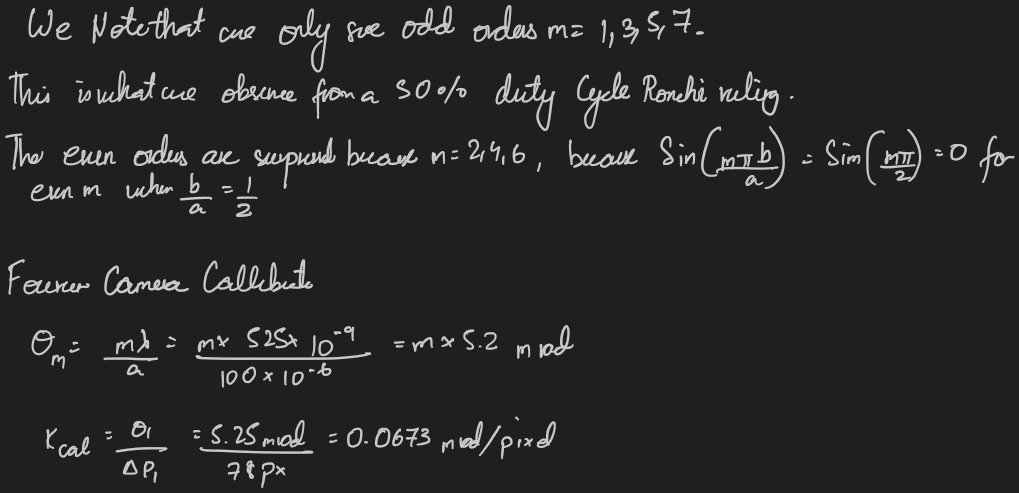 We Note that we only see odd orders m = 1, 3, 5, 7.
This is what we observe from a 50% duty Cycle Ronchi ruling.
The even orders are because m = 2, 4, 6, because Sin(mπb/a) = Sin(mπ/2) = 0 for
even m when b/a = 1/2
Fourier Camera
θ_m = mλ/a = m × 525 × 10^-9 / 100 × 10^-6 = m × 5.2 mrad
K_cal = θ_1/ΔP_1 = 5.25 mrad / 78 px = 0.0673 mrad/pixel